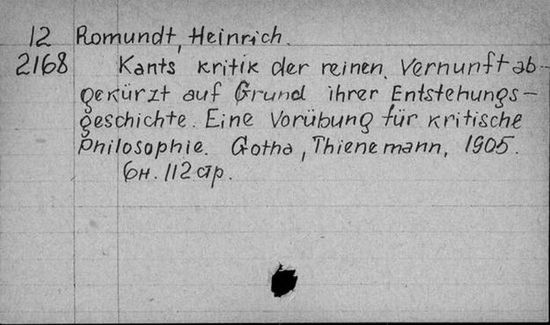 12 Romundt, Heinrich.
2168 Kants Kritik der reinen Vernunft ab-
gekürzt auf Grund ihrer Entstehungs-
geschichte. Eine Vorübung für kritische
Philosophie. Gotha, Thienemann, 1905.
6н. 112 стр.